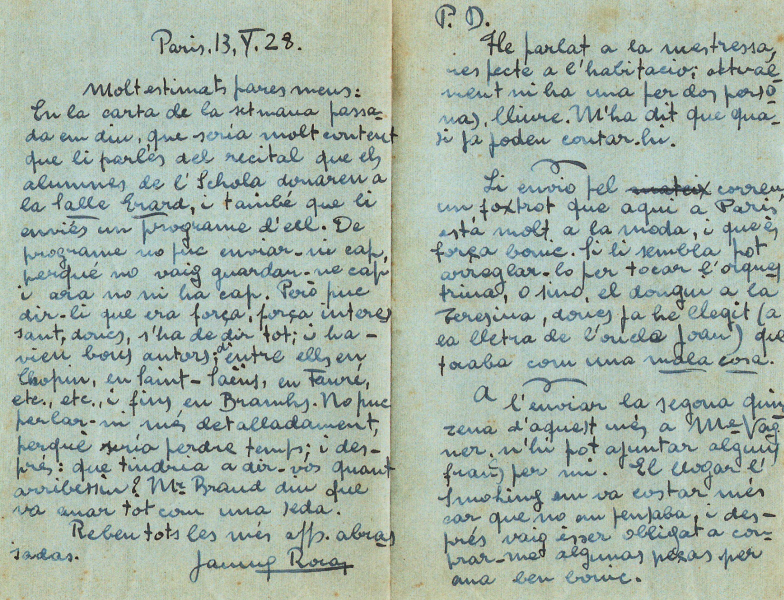 Paris, 13, V. 28.
Molt estimats pares meus:
En la carta de la setmana passa-
da em diu, que seria molt content
que li parlés del recital que els
alumnes de l'Schola donaren a
la Salle Erard, i també que li
enviés un programe d'ell. De
programe no puc enviar-ni cap,
perquè no vaig guardan-ne cap
i ara no ni ha cap. Però puc
dir-li que era força, força interes
sant, doncs, s'ha de dir tot; i ha-
vien bons autors; d'entre ells en
Chopin, en Saint-Saëns, en Fauré,
etc., etc., i fins en Bramhs. No puc
perlar-ni més detalladament,
perquè seria perdre temps; i des-
prés: que tindria a dir-vos quant
arribessin? Mr. Braud diu que
va anar tot com una seda.
Reben tots les més aff. abras
sadas.
Jaume Roca
P. D.
He parlat a la mestressa,
respecte a l'habitació; aktual-
ment ni ha una per dos perso-
nas, lliure. M'ha dit que qua-
si ja poden contar-hi.
Li envio pel mateix correu
un foxtrot que aqui a Paris
està molt a la moda, i que és
força bonic. Si li sembla pot
arreglar-lo per tocar l'orques-
trina, o sinó, el dongui a la
Teresina, doncs ja he llegit (a
la lletra de l'oncle Joan) que
tocaba com una mala cosa.
A l'enviar la segona quin
zena d'aquest més a Me Vag-
ner, n'hi pot ajuntar alguns
francs per mi. El llogar l'
Smoking em va costar més
car que no em pensaba, i des-
prés vaig ésser obligat a com-
prar-me algunas pezas per
ana ben bonic.